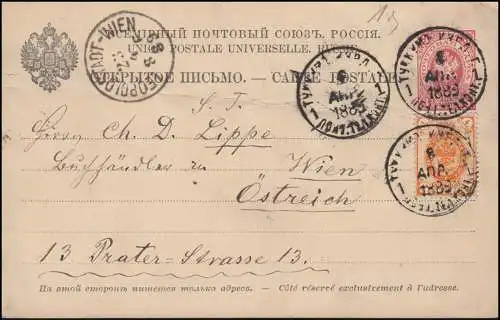 ВСЕМІРНЫЙ ПОЧТОВЫЙ СОЮЗЪ. РОССІЯ.
UNION POSTALE UNIVERSELLE. RUSSIE.
ОТКРЫТОЕ ПИСЬМО. — CARTE POSTALE.
LEOPOLDSTADT-WIEN
ТУККУМЪ
6
АПР.
1889
ТУККУМЪ
6
АПР.
1889
ТУККУМЪ
6
АПР.
1889
S. T.
Herrn Ch. D. Lippe
Buchhändler in Wien
Östreich
13 Prater-Strasse 13.
На этой сторонѣ пишется только адресъ. — Côté réservé exclusivement à l'adresse.